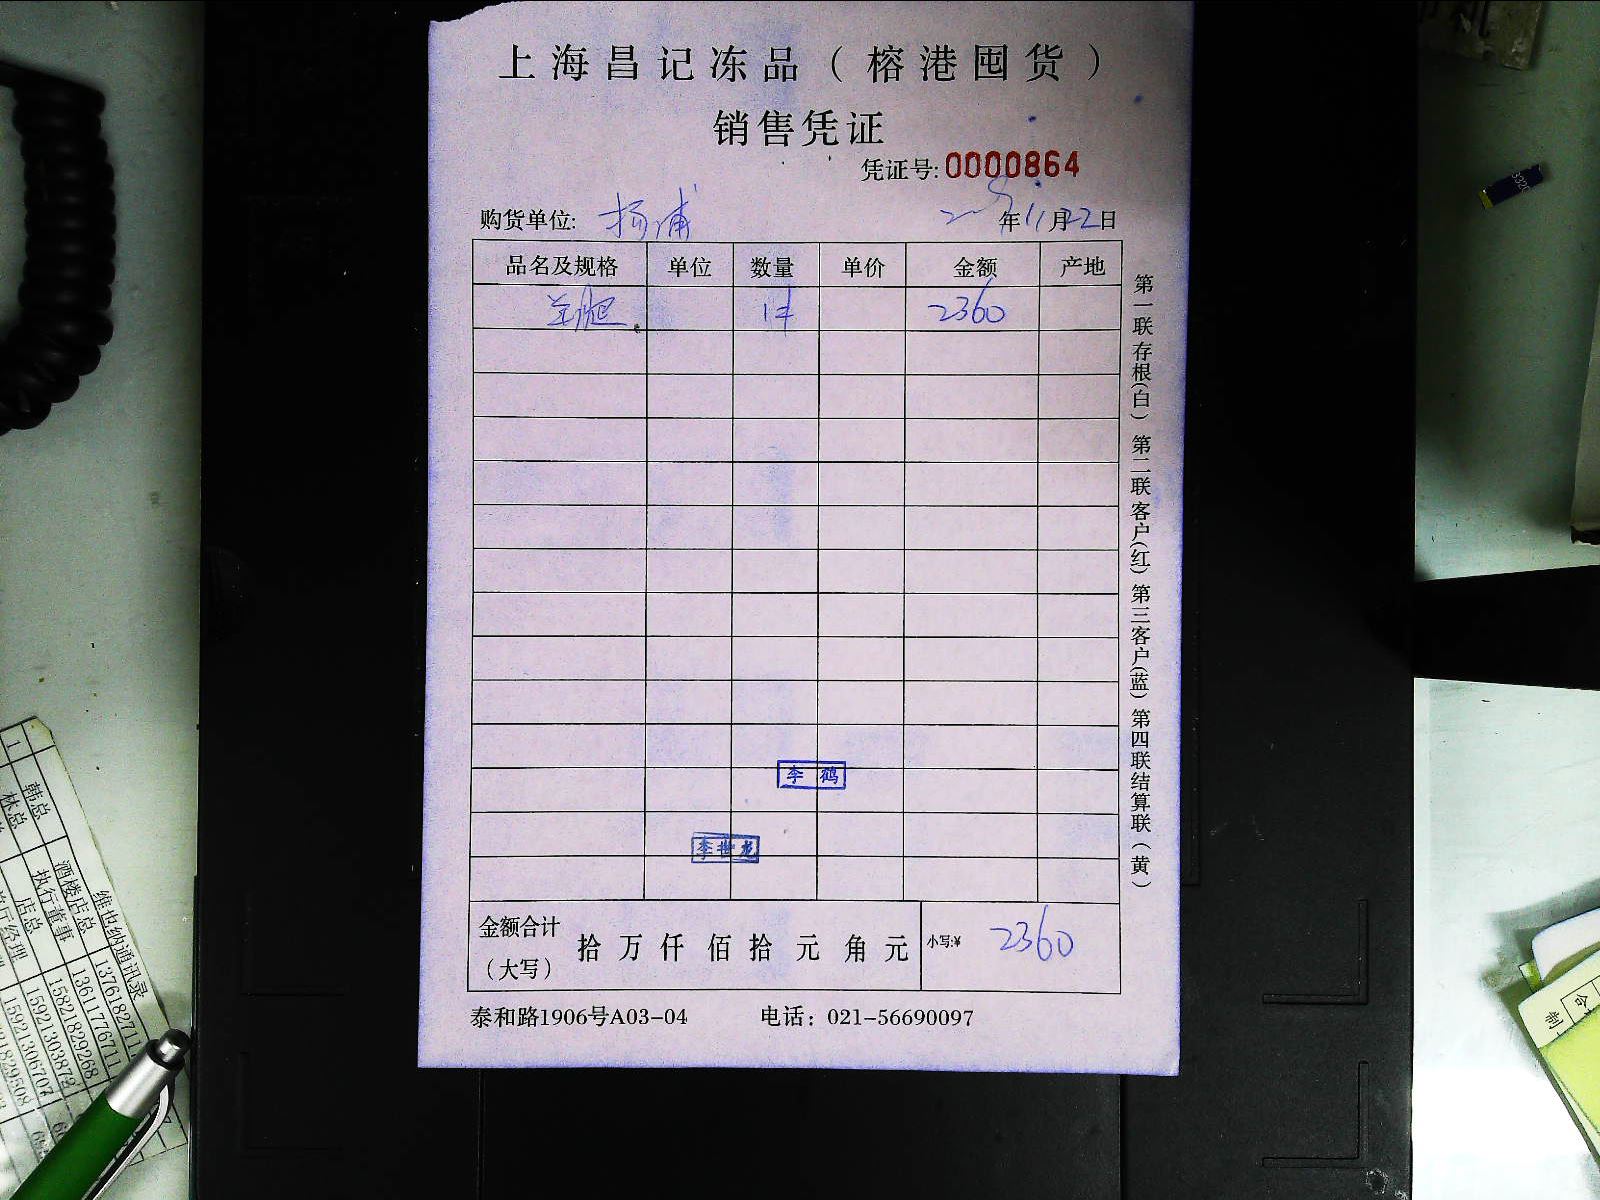 上海昌记冻品（榕港囤货）
销售凭证
凭证号:0000864
购货单位: 杨浦 年11月22日
品名及规格 单位 数量 单价 金额 产地
羊腿 1件 2360
李鹤
李世龙
金额合计（大写） 拾万仟佰拾元角元 小写:¥ 2360
泰和路1906号A03-04 电话：021-56690097
第一联存根(白) 第二联客户(红) 第三客户(蓝) 第四联结算联（黄）
维也纳通讯录
酒楼店总
执行董事
店总
韩总
林总
1